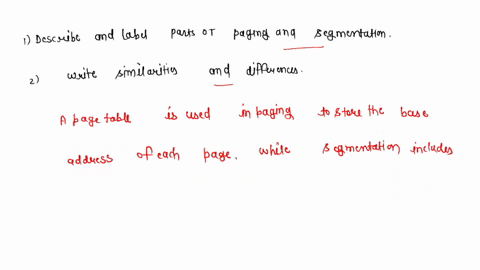 1) Describe and label parts of paging and segmentation.
2) write similarities and differences.
A page table is used in paging to store the base
address of each page, while segmentation includes